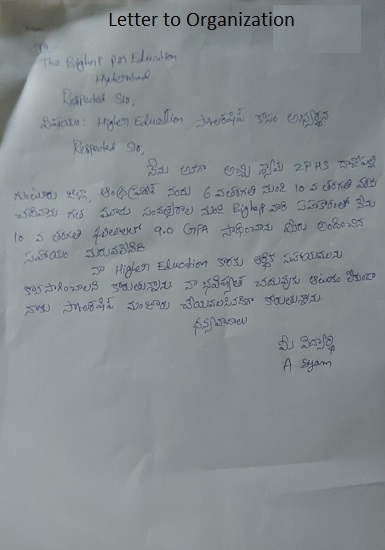 Letter to Organization
To
The Bighelp For Education
Hyderabad
Respected Sir,
విషయం: Higher Education స్కాలర్‌షిప్ కొరకు అభ్యర్థన
Respected Sir,
నేను అనగా శ్యామ్ Z.P.H.S
గుంటూరు జిల్లా, ఆంధ్రప్రదేశ్ నందు 6 వ తరగతి నుండి 10 వ తరగతి వరకు
చదివాను గత మూడు సంవత్సరాల నుండి Bighelp వారి సహకారంతో నేను
10 వ తరగతి ఫలితాలలో 9.0 GPA సాధించాను మీరు అందించిన
సహాయం మరువలేనిది
నా Higher Education కొరకు ఆర్థిక సహాయమును
కొనసాగించాలని కోరుతున్నాను. నా భవిష్యత్ చదువుకు ఆటంకం లేకుండా
నాకు స్కాలర్‌షిప్ మంజూరు చేయవలసినదిగా కోరుతున్నాను
ధన్యవాదాలు
మీ విద్యార్థి
A. Syam